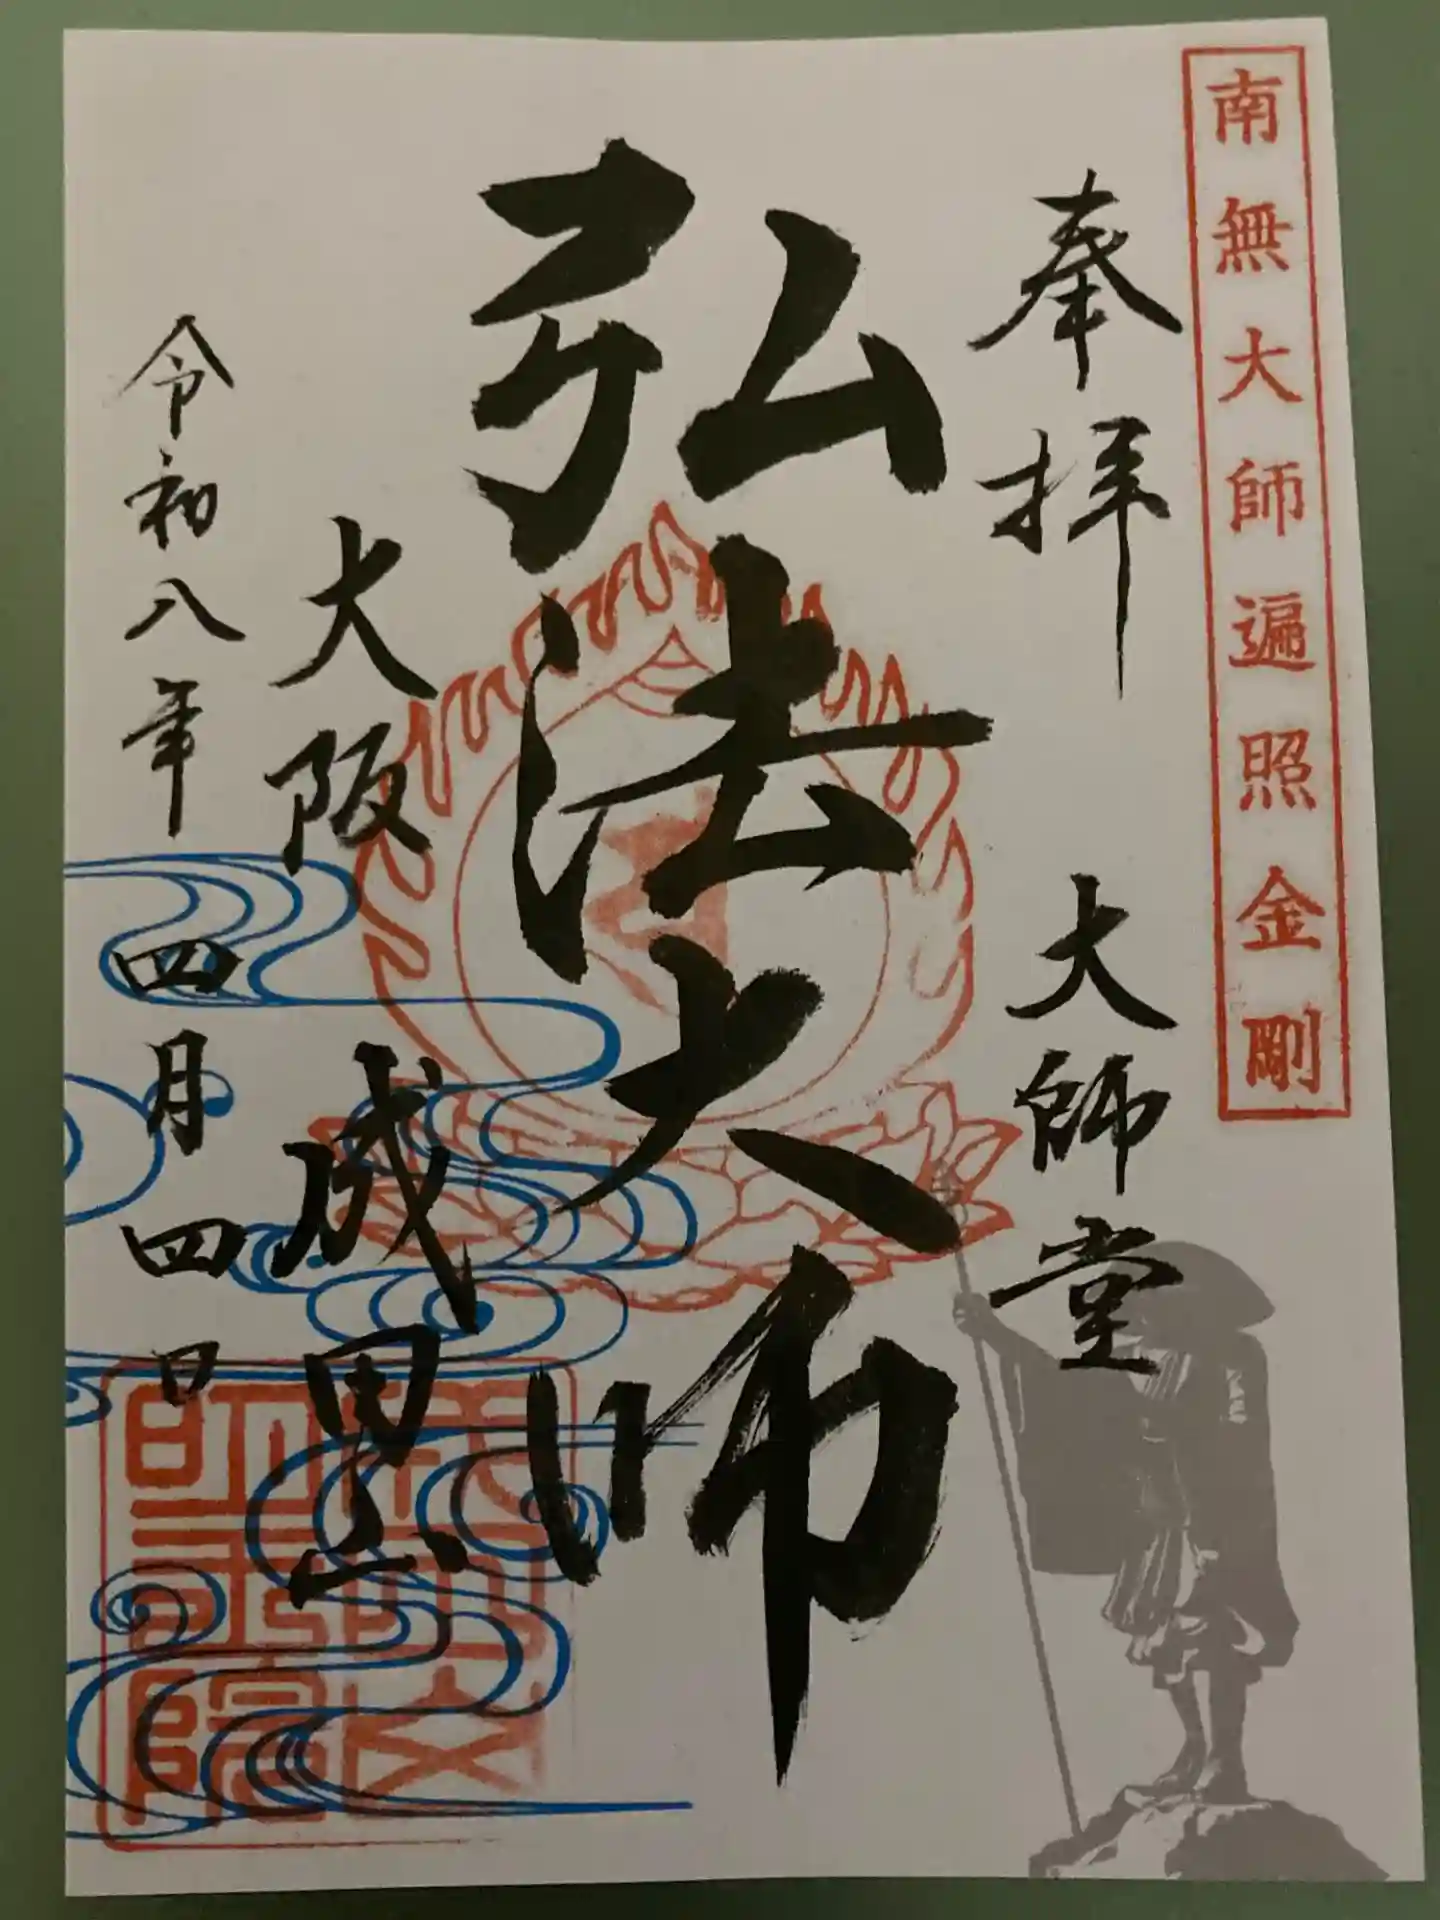 南無大師遍照金剛
奉拝　大師堂
弘法大師
大阪　成田山
令和八年　四月四日
成田山
明王院